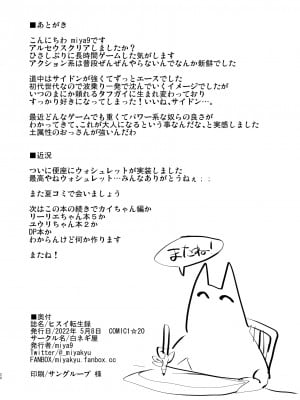 ■あとがき
こんにちわ miya9です
アルセウスクリアしましたか？
ひさしぶりに長時間ゲームした気がします
アクション系は普段ぜんぜんやらないんでなんか新鮮でした
道中はサイドンが強くてずっとエースでした
初代世代なので波乗り一発で沈んでいくイメージでしたが
いまやめっちゃ頼れるタフガイに生まれ変わっており
すっかり好きになってしまった！いいね、サイドン…。
最近どんなゲームでも重くてパワー系な奴らの良さが
わかってきて、これが大人になるという事なんだな、と実感しました
土属性のおっさんが次にくる
■近況
ついに便座にウォシュレットが実装しました
最高やねウォシュレット…みんなありがとうねぇ；；
また夏コミで会いましょう
次はこの本の続きでカイちゃん編か
リーリエちゃん本5か
ユウリちゃん本2か
DP本か
わからんけど何か作ります
またね！
またね！
■奥付
誌名/ヒスイ転生録
発行日/2022年 5月8日 COMIC1☆20
サークル名/白ネギ屋
発行者/miya9
Twitter/@_miyakyu
FANBOX/miyakyu.fanbox.cc
印刷/サングループ 様